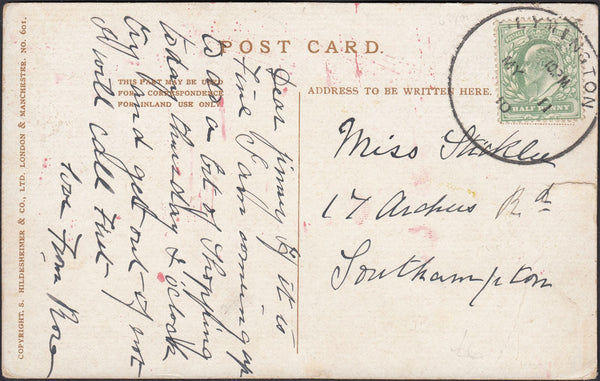 POST CARD.
THIS PART MAY BE USED
FOR CORRESPONDENCE
FOR INLAND USE ONLY.
ADDRESS TO BE WRITTEN HERE.
COPYRIGHT. S. HILDESHEIMER & CO., LTD. LONDON & MANCHESTER. NO. 601.
LYMINGTON
MY 11
10
HALF PENNY
Dear if it is
fine I am coming up
to do a bit of Shopping
thursday 2 oclock
try and get out if not
will call
love from Rose
Miss
17 Archers Rd
Southampton